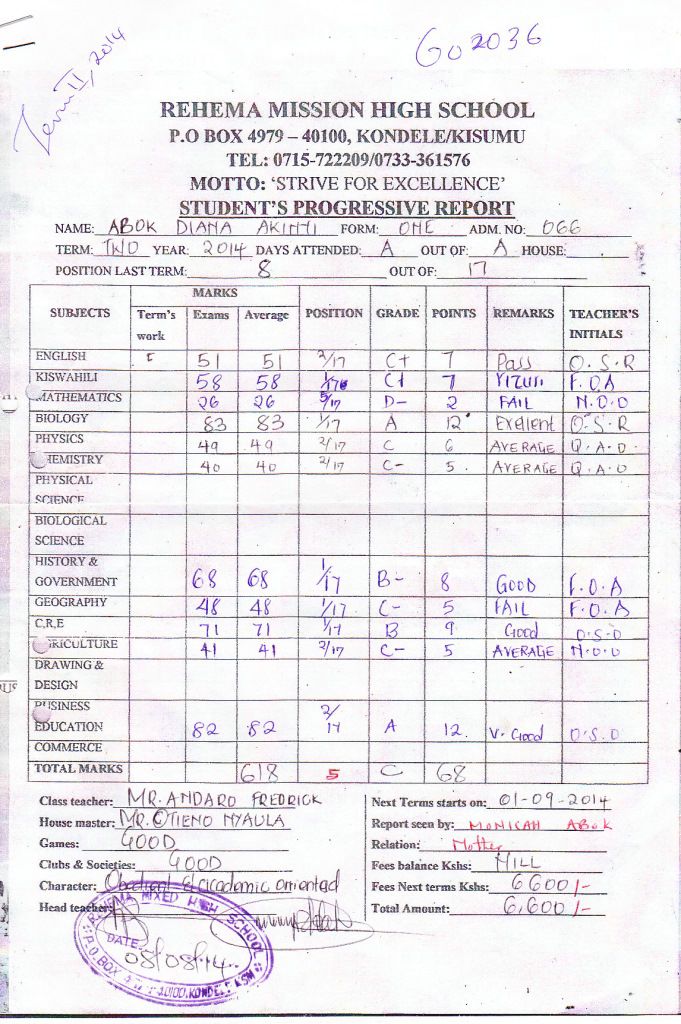 GO2036
Term II, 2014
REHEMA MISSION HIGH SCHOOL
P.O BOX 4979 – 40100, KONDELE/KISUMU
TEL: 0715-722209/0733-361576
MOTTO: ‘STRIVE FOR EXCELLENCE’
STUDENT'S PROGRESSIVE REPORT
NAME: ABOK DIANA AKINYI FORM: ONE ADM. NO: 066
TERM: TWO YEAR: 2014 DAYS ATTENDED: A OUT OF: A HOUSE:
POSITION LAST TERM: 8 OUT OF: 17
MARKS
SUBJECTS Term's work Exams Average POSITION GRADE POINTS REMARKS TEACHER'S INITIALS
ENGLISH 51 51 2/17 C+ 7 Pass O.S.R
KISWAHILI 58 58 C+ 7 VIZURI F.O.A
MATHEMATICS 26 26 5/17 D- 2 FAIL N.O.O
BIOLOGY 83 83 1/17 A 12 Exellent O.S.R
PHYSICS 49 49 2/17 C 6 AVERAGE Q.A.O
CHEMISTRY 40 40 2/17 C- 5. AVERAGE Q.A.O
PHYSICAL SCIENCE
BIOLOGICAL SCIENCE
HISTORY & GOVERNMENT 68 68 1/17 B- 8 GOOD F.O.A
GEOGRAPHY 48 48 1/17 C- 5 FAIL F.O.A
C.R.E 71 71 1/17 B 9 Good O.S.O
AGRICULTURE 41 41 2/17 C- 5 AVERAGE N.O.O
DRAWING & DESIGN
BUSINESS EDUCATION 82 82 2/17 A 12. V. Good O.S.O
COMMERCE
TOTAL MARKS 618 5 C 68
Class teacher: MR. ANDARO FREDRICK
House master: MR. OTIENO NYAULA
Games: GOOD
Clubs & Societies: GOOD
Character: Obedient & academic oriented
Head teacher:
Next Terms starts on: 01-09-2014
Report seen by: MONICAH ABOK
Relation: Mother
Fees balance Kshs: NILL
Fees Next terms Kshs: 6600/-
Total Amount: 6,600/-
REHEMA MIXED HIGH SCHOOL
DATE: 08/08/14
P.O. BOX KONDELE KSM